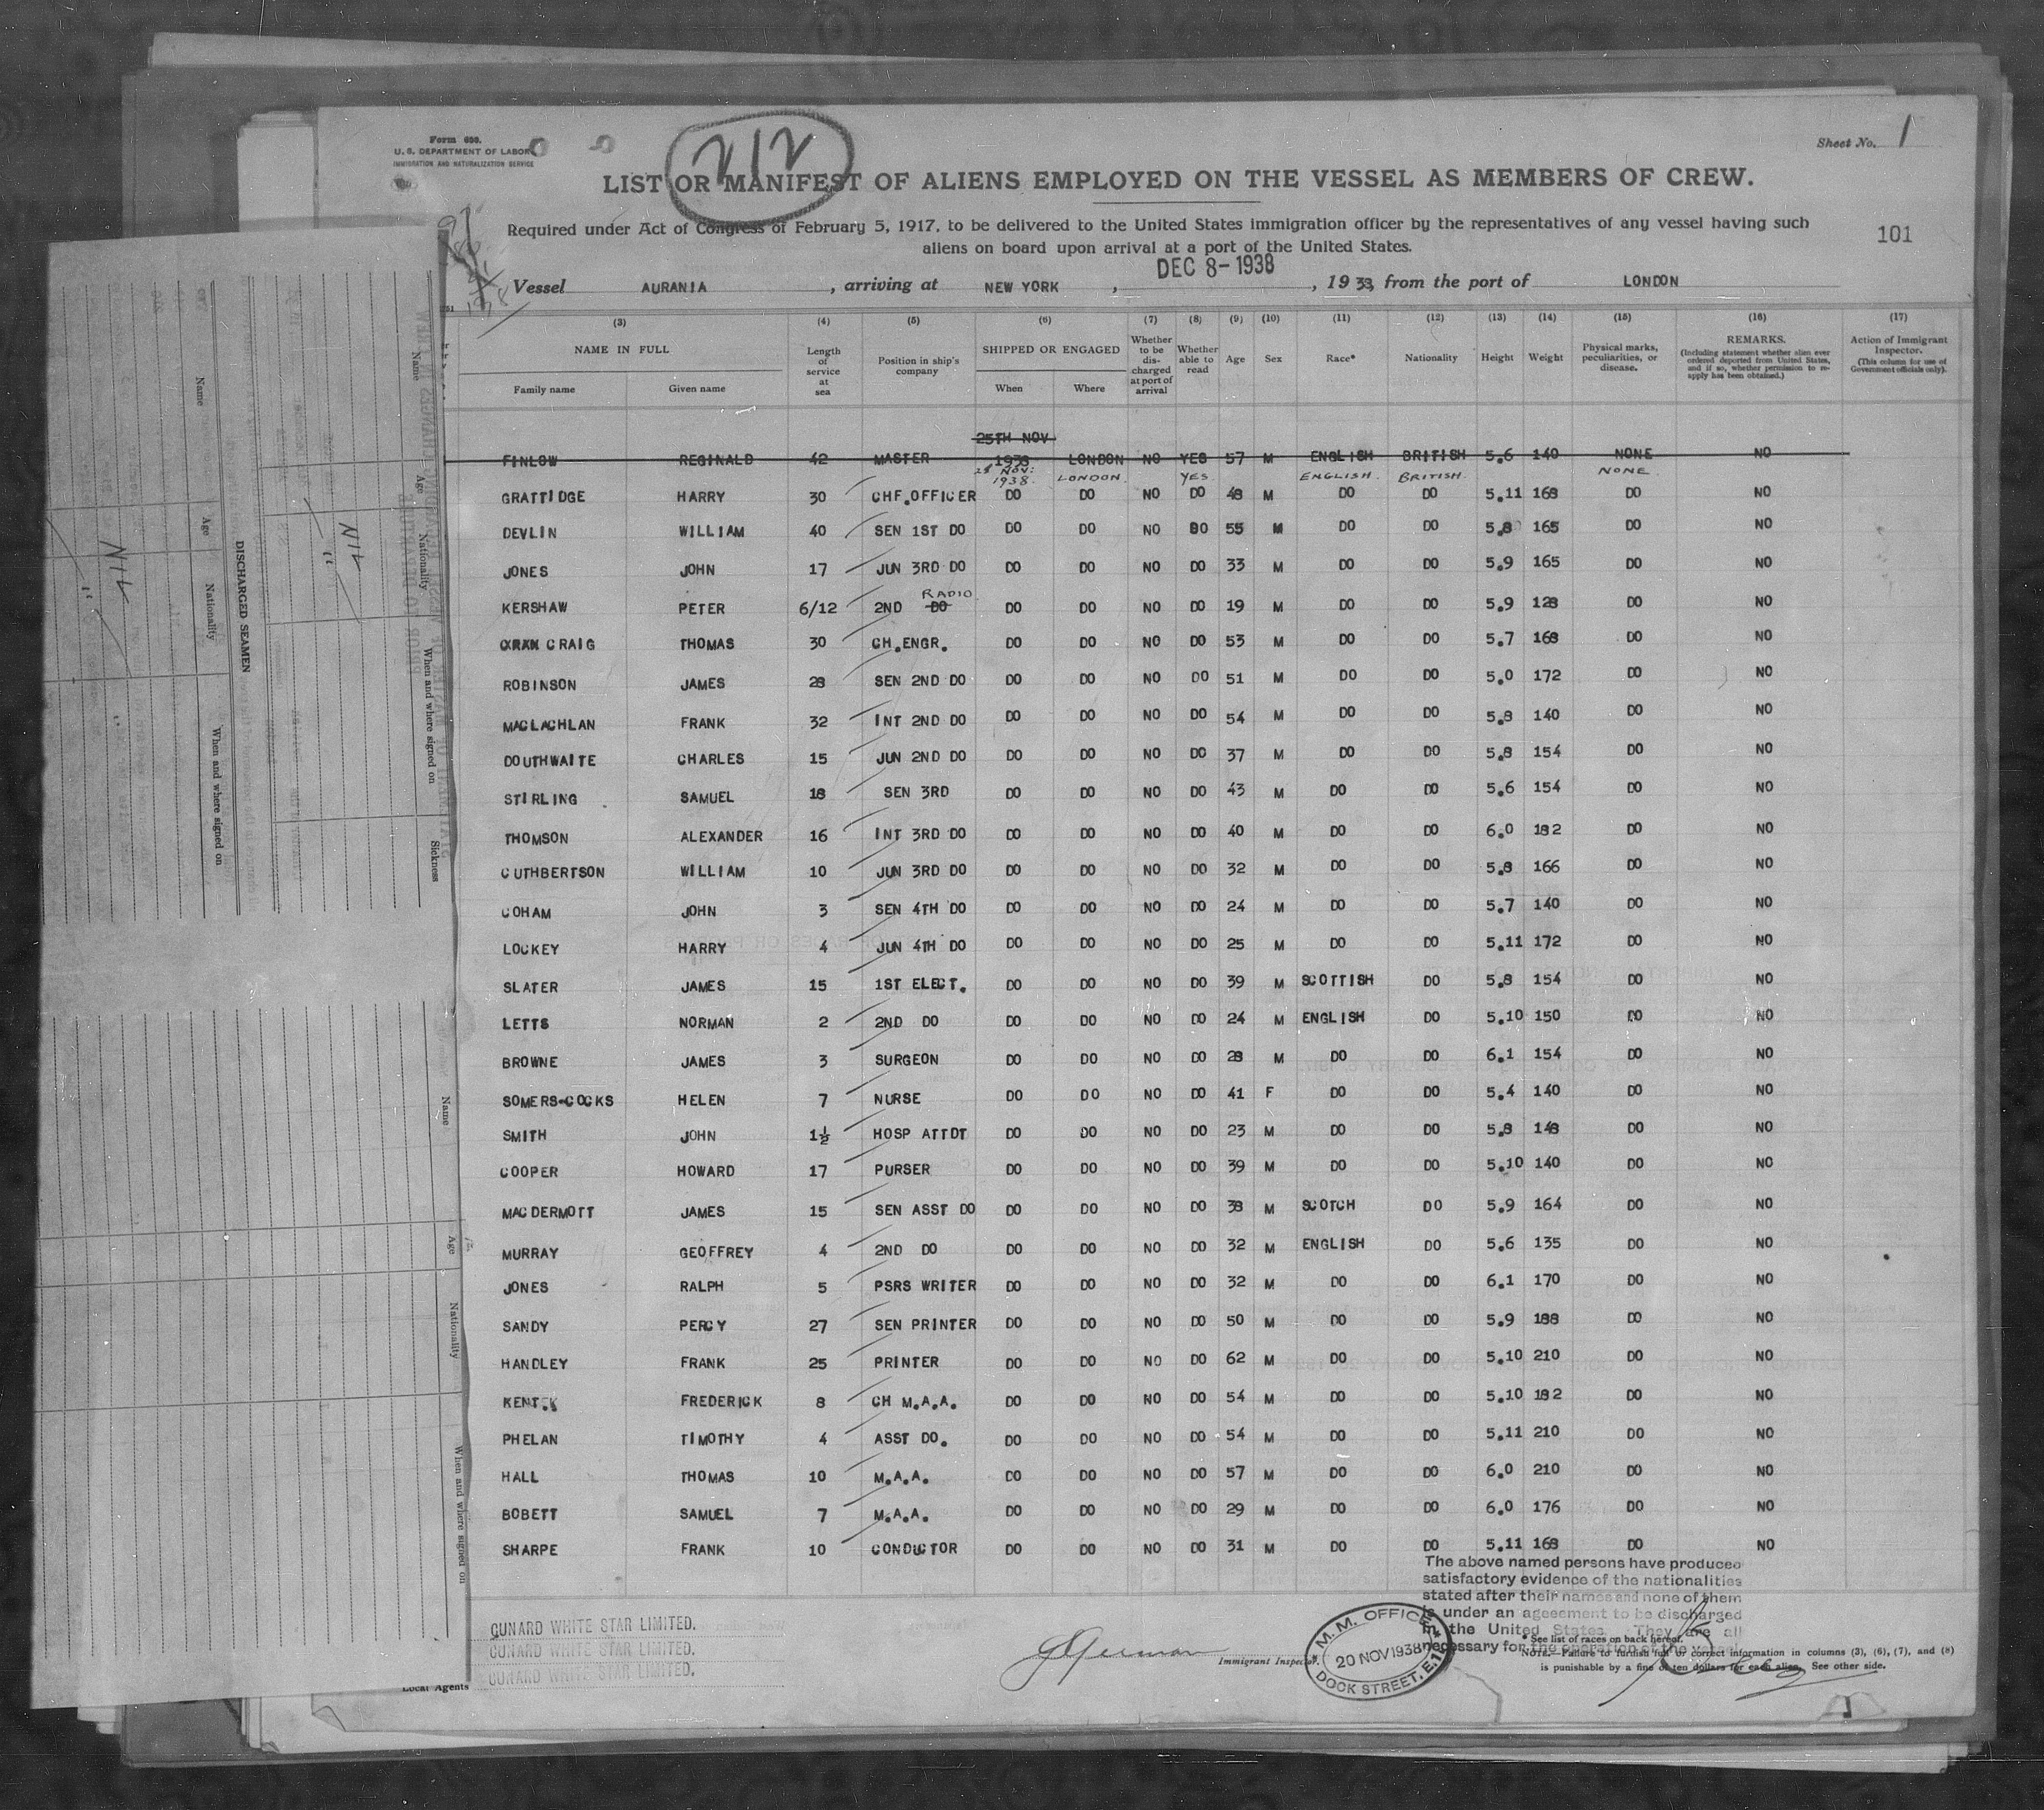 Form 680.
U. S. DEPARTMENT OF LABOR
IMMIGRATION AND NATURALIZATION SERVICE
212
Sheet No. 1
LIST OR MANIFEST OF ALIENS EMPLOYED ON THE VESSEL AS MEMBERS OF CREW.
Required under Act of Congress of February 5, 1917, to be delivered to the United States immigration officer by the representatives of any vessel having such
aliens on board upon arrival at a port of the United States.
101
DEC 8-1938
Vessel AURANIA, arriving at NEW YORK, , 1938, from the port of LONDON
(3) (4) (5) (6) (7) (8) (9) (10) (11) (12) (13) (14) (15) (16) (17)
NAME IN FULL Family name Given name
Length of service at sea
Position in ship's company
SHIPPED OR ENGAGED When Where
Whether to be discharged at port of arrival
Whether able to read
Age Sex Race* Nationality Height Weight
Physical marks, peculiarities, or disease.
REMARKS. (Including statement whether alien ever ordered deported from United States, and if so, whether permission to reapply has been obtained.)
Action of Immigrant Inspector. (This column for use of Government officials only).
25TH NOV
FINLOW REGINALD 42 MASTER 1938 LONDON NO YES 57 M ENGLISH BRITISH 5.6 140 NONE NO
NOV: 1938. LONDON. YES. ENGLISH. BRITISH. NONE.
GRATTIDGE HARRY 30 CHF.OFFICER DO DO NO DO 48 M DO DO 5.11 168 DO NO
DEVLIN WILLIAM 40 SEN 1ST DO DO DO NO DO 55 M DO DO 5.8 165 DO NO
JONES JOHN 17 JUN 3RD DO DO DO NO DO 33 M DO DO 5.9 165 DO NO
RADIO
KERSHAW PETER 6/12 2ND DO DO DO NO DO 19 M DO DO 5.9 128 DO NO
CRAIG THOMAS 30 CH.ENGR. DO DO NO DO 53 M DO DO 5.7 168 DO NO
ROBINSON JAMES 28 SEN 2ND DO DO DO NO DO 51 M DO DO 5.0 172 DO NO
MACLACHLAN FRANK 32 INT 2ND DO DO DO NO DO 54 M DO DO 5.8 140 DO NO
DOUTHWAITE CHARLES 15 JUN 2ND DO DO DO NO DO 37 M DO DO 5.8 154 DO NO
STIRLING SAMUEL 18 SEN 3RD DO DO NO DO 43 M DO DO 5.6 154 DO NO
THOMSON ALEXANDER 16 INT 3RD DO DO DO NO DO 40 M DO DO 6.0 182 DO NO
CUTHBERTSON WILLIAM 10 JUN 3RD DO DO DO NO DO 32 M DO DO 5.8 166 DO NO
COHAM JOHN 3 SEN 4TH DO DO DO NO DO 24 M DO DO 5.7 140 DO NO
LOCKEY HARRY 4 JUN 4TH DO DO DO NO DO 25 M DO DO 5.11 172 DO NO
SLATER JAMES 15 1ST ELECT. DO DO NO DO 39 M SCOTTISH DO 5.8 154 DO NO
LETTS NORMAN 2 2ND DO DO DO NO DO 24 M ENGLISH DO 5.10 150 DO NO
BROWNE JAMES 3 SURGEON DO DO NO DO 28 M DO DO 6.1 154 DO NO
SOMERS-COCKS HELEN 7 NURSE DO DO NO DO 41 F DO DO 5.4 140 DO NO
SMITH JOHN 1½ HOSP ATTDT DO DO NO DO 23 M DO DO 5.8 148 DO NO
COOPER HOWARD 17 PURSER DO DO NO DO 39 M DO DO 5.10 140 DO NO
MACDERMOTT JAMES 15 SEN ASST DO DO DO NO DO 38 M SCOTCH DO 5.9 164 DO NO
MURRAY GEOFFREY 4 2ND DO DO DO NO DO 32 M ENGLISH DO 5.6 135 DO NO
JONES RALPH 5 PSRS WRITER DO DO NO DO 32 M DO DO 6.1 170 DO NO
SANDY PERCY 27 SEN PRINTER DO DO NO DO 50 M DO DO 5.9 188 DO NO
HANDLEY FRANK 25 PRINTER DO DO NO DO 62 M DO DO 5.10 210 DO NO
KENT FREDERICK 8 CH M.A.A. DO DO NO DO 54 M DO DO 5.10 182 DO NO
PHELAN TIMOTHY 4 ASST DO. DO DO NO DO 54 M DO DO 5.11 210 DO NO
HALL THOMAS 10 M.A.A. DO DO NO DO 57 M DO DO 6.0 210 DO NO
BOBETT SAMUEL 7 M.A.A. DO DO NO DO 29 M DO DO 6.0 176 DO NO
SHARPE FRANK 10 CONDUCTOR DO DO NO DO 31 M DO DO 5.11 168 DO NO
The above named persons have produced
satisfactory evidence of the nationalities
stated after their names and none of them
is under an ageeement to be discharged
in the United States They are all
necessary for the operation of the vessel
CUNARD WHITE STAR LIMITED.
CUNARD WHITE STAR LIMITED.
CUNARD WHITE STAR LIMITED.
Local Agents
Immigrant Inspector.
M.M. OFFICE
20 NOV 1938
DOCK STREET, E.1
* See list of races on back hereof.
NOTE.—Failure to furnish full or correct information in columns (3), (6), (7), and (8)
is punishable by a fine of ten dollars for each alien. See other side.
Name Age Nationality When and where signed on Sickness
NIL
DISCHARGED SEAMEN
Name Age Nationality When and where signed on
NIL
Name Age Nationality When and where signed on